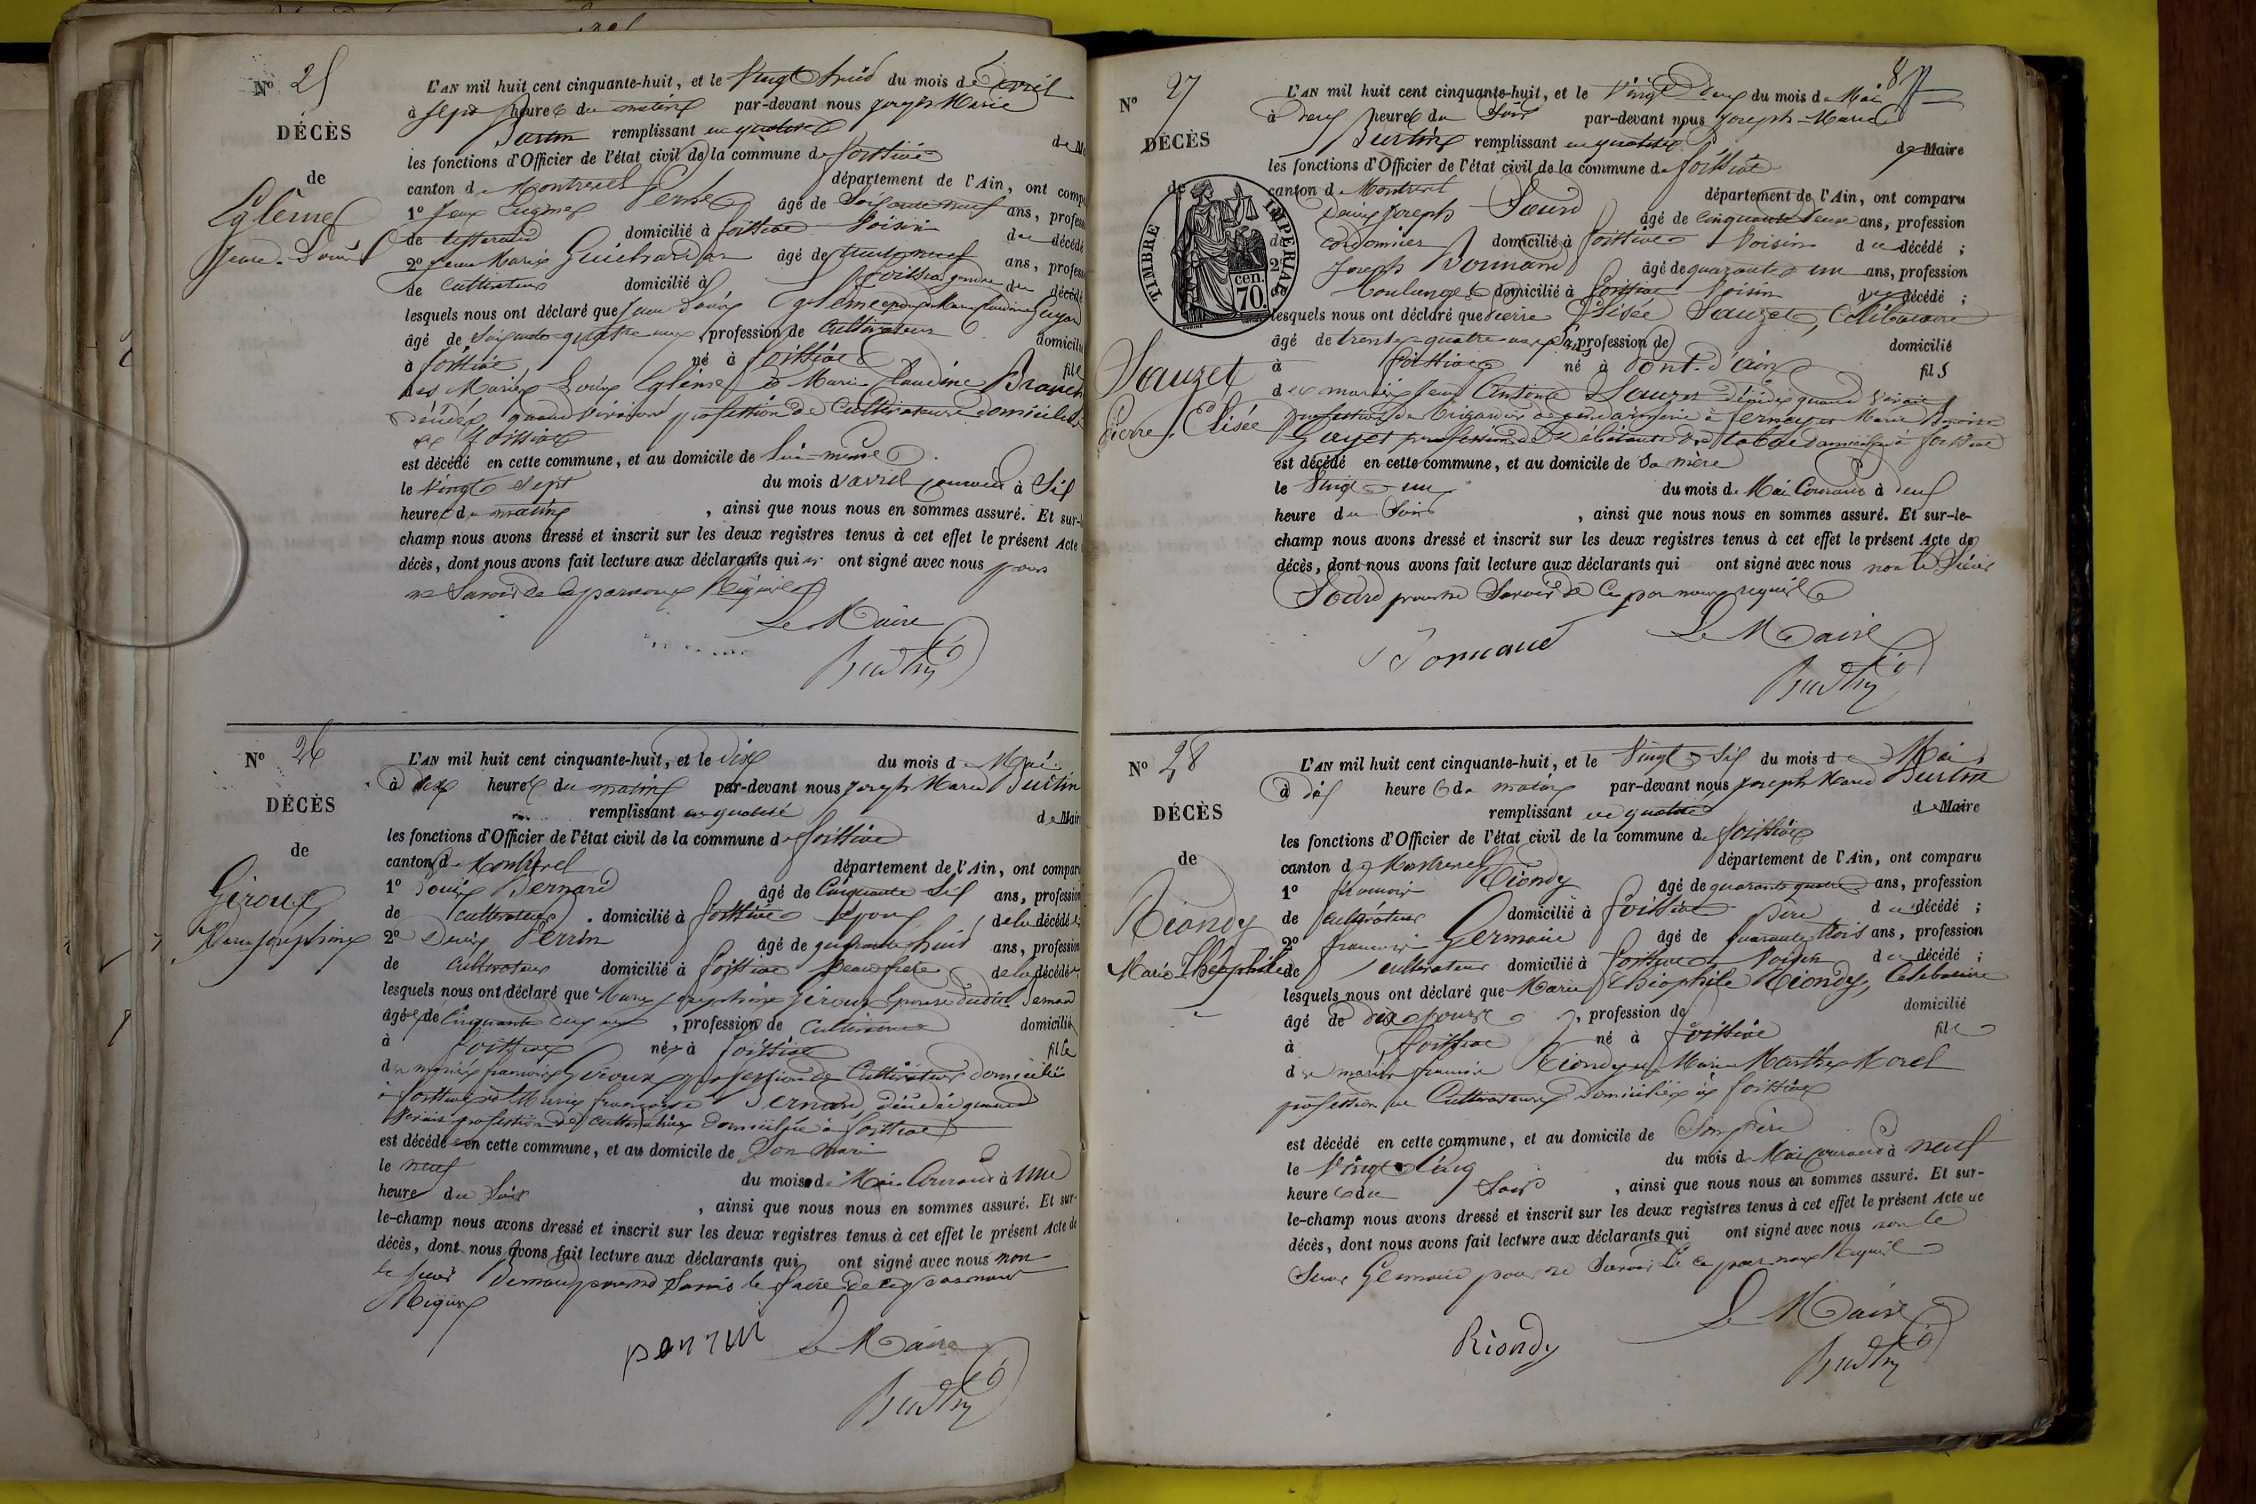 N° 25
DÉCÈS
de
Eglême
Jean Louis
L'AN mil huit cent cinquante-huit, et le Vingt huit du mois d'avril
à sept heures du matin par-devant nous Joseph Marie
Burtin remplissant en qualité de M
les fonctions d'Officier de l'état civil de la commune de foissiat
canton de Montrevel département de l'Ain, ont comp
1° Jean Eugène âgé de Soixante neuf ans, profess
de tisserand domicilié à foissiat Voisin du décédé
2° Jean Marie Guichardon âgé de trente neuf ans, profess
de cultivateur domicilié à foissiat gendre du décédé
lesquels nous ont déclaré que Jean Louis Eglême époux de Marie Claudine Guyon
âgé de Soixante quatre ans, profession de Cultivateur domicilié
à foissiat né à foissiat fils
des Mariés Louis Eglême et Marie Claudine
décédés quand vivaient profession de Cultivateurs domiciliés
à foissiat
est décédé en cette commune, et au domicile de lui-même
le Vingt Sept du mois d'avril courant à Six
heures du matin, ainsi que nous nous en sommes assuré. Et sur-
champ nous avons dressé et inscrit sur les deux registres tenus à cet effet le présent Acte
décès, dont nous avons fait lecture aux déclarants qui n' ont signé avec nous pour
ne Savoir de ce par nous Requis
Le Maire
Burtin
N° 26
DÉCÈS
de
Giroux
Marie Josephine
L'AN mil huit cent cinquante-huit, et le dix du mois de Mai
à dix heures du matin par-devant nous Joseph Marie Burtin
remplissant en qualité de Mair
les fonctions d'Officier de l'état civil de la commune de foissiat
canton de Montrevel département de l'Ain, ont comparu
1° Louis Bernard âgé de Cinquante Six ans, profession
de cultivateur domicilié à foissiat époux de la décédée
2° Denis Perrin âgé de quarante huit ans, profession
de Cultivateur domicilié à foissiat beau frère de la décédée
lesquels nous ont déclaré que Marie Josephine Giroux Epouse dudit Bernard
âgée de Cinquante deux ans, profession de Cultivatrice domicilié
à foissiat née à foissiat fille
de mariés françois Giroux profession de Cultivateur domicilié
à foissiat et Marie françoise Bernard, décédée quand
Vivait profession de Cultivatrice domiciliée à foissiat
est décédé en cette commune, et au domicile de Son mari
le neuf du mois de Mai Courant à une
heure du Soir, ainsi que nous nous en sommes assuré. Et sur-
le-champ nous avons dressé et inscrit sur les deux registres tenus à cet effet le présent Acte de
décès, dont nous avons fait lecture aux déclarants qui ont signé avec nous non
le Sieur Bernard pour ne Savoir le faire de ce par nous
Requis
perrin Le Maire
Burtin
N° 27
DÉCÈS
de
TIMBRE IMPÉRIAL
70 cen.
Sauzet
Pierre Elisée
L'AN mil huit cent cinquante-huit, et le Vingt Deux du mois de Mai
à deux heures du Soir par-devant nous Joseph-Marie
Burtin remplissant en qualité de Maire
les fonctions d'Officier de l'état civil de la commune de foissiat
canton de Montrevel département de l'Ain, ont comparu
Denis Joseph Sourd âgé de cinquante deux ans, profession
de cordonnier domicilié à foissiat Voisin du décédé ;
2° Joseph Vormand âgé de quarante un ans, profession
de Boulanger domicilié à foissiat Voisin du décédé ;
lesquels nous ont déclaré que Pierre Elisée Sauzet, Célibataire
âgé de trente-quatre ans, profession de domicilié
à foissiat né à Pont-d'ain fils
des mariés Jean Antoine Sauzet décédé quand vivait
profession de Brigadier de gendarmerie à ferney et Marie
Guyet profession de Débitante de tabac domiciliée à foissiat
est décédé en cette commune, et au domicile de Sa mère
le Vingt un du mois de Mai Courant à deux
heure du Soir, ainsi que nous nous en sommes assuré. Et sur-le-
champ nous avons dressé et inscrit sur les deux registres tenus à cet effet le présent Acte de
décès, dont nous avons fait lecture aux déclarants qui ont signé avec nous non le Sieur
Sourd pour ne Savoir de ce par nous requis
Le Maire
Burtin
N° 28
DÉCÈS
de
Riondy
Marie Théophile
L'AN mil huit cent cinquante-huit, et le Vingt-Six du mois de Mai
à dix heures du matin par-devant nous Joseph Marie Burtin
remplissant en qualité de Maire
les fonctions d'Officier de l'état civil de la commune de foissiat
canton de Montrevel département de l'Ain, ont comparu
1° françois Riondy âgé de quarante quatre ans, profession
de Cultivateur domicilié à foissiat père du décédé ;
2° françois Germain âgé de quarante trois ans, profession
de cultivateur domicilié à foissiat Voisin du décédé ;
lesquels nous ont déclaré que Marie Théophile Riondy, Célibataire
âgé de dix jours, profession de domicilié
à foissiat né à foissiat fille
de mariés françois Riondy et Marie Marthe Morel
profession de Cultivateurs domiciliés à foissiat
est décédé en cette commune, et au domicile de Son père
le Vingt Cinq du mois de Mai courant à neuf
heures du Soir, ainsi que nous nous en sommes assuré. Et sur-
le-champ nous avons dressé et inscrit sur les deux registres tenus à cet effet le présent Acte de
décès, dont nous avons fait lecture aux déclarants qui ont signé avec nous non le
Sieur Germain pour ne Savoir de ce par nous Requis
Le Maire
Riondy Burtin